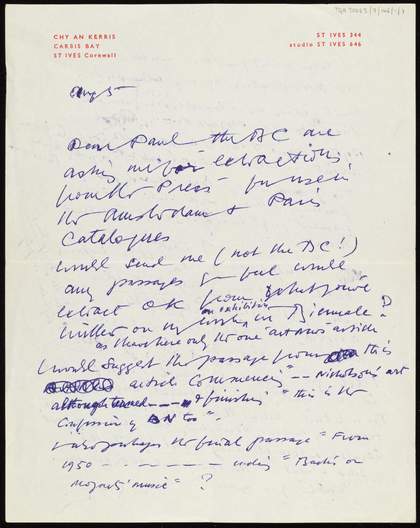 CHY AN KERRIS
CARBIS BAY
ST IVES Cornwall
ST IVES 344
studio ST IVES 646
Aug 5
Dear Paul the BC are
asking me for extractions
from the Press for use in
the Amsterdam & Paris
Catalogues
would send me (not the BC!)
any passages you feel would
extract OK from what you've
written on my work, in Biennale?
an exhibition
as there's only the one art news article
I would suggest the passage from this
article commencing " -- Nicholson's art
although tuned --- & finishing " this is the
of BN too".
& also perhaps the final passage " From
1950 - - - - - - ending " Bach's or
Mozart's music " ?